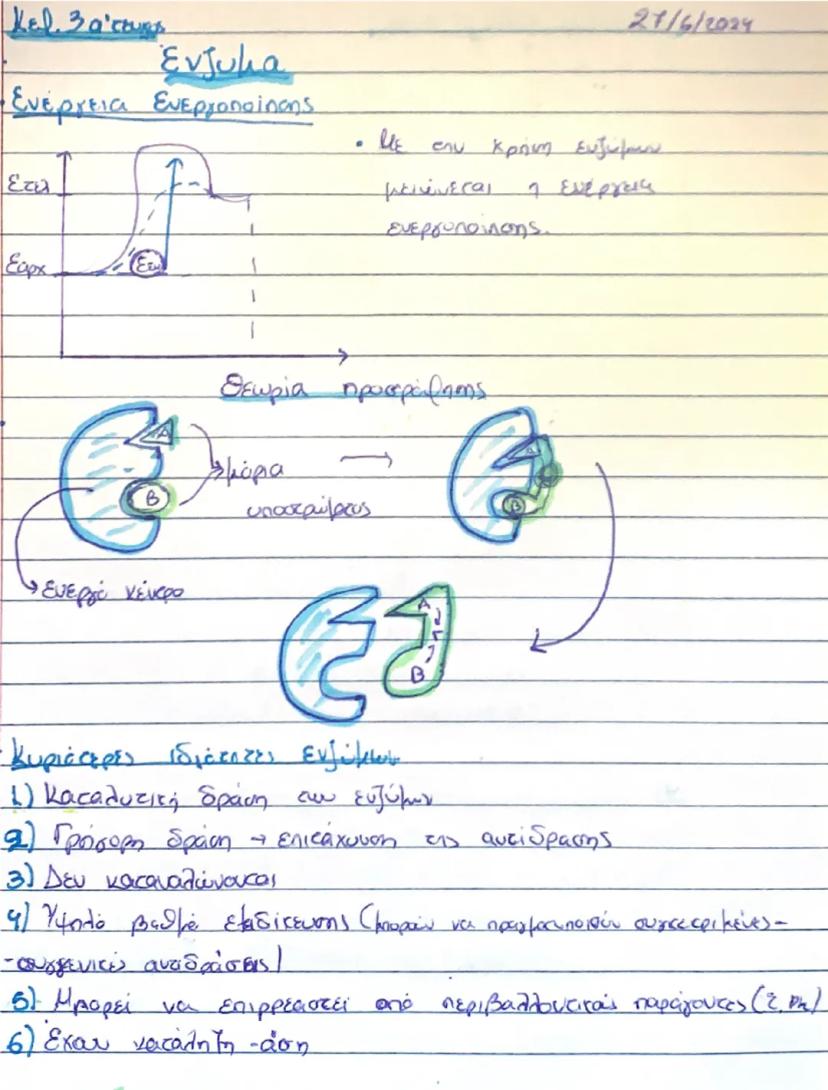 Κεφ. 3 α' τευχ.
27/6/2024
Ένζυμα
Ενέργεια Ενεργοποίησης
• Με την χρήση ενζύμων
μειώνεται η ενέργεια
ενεργοποίησης.
Ετελ
Εαρχ
Εεν
Θεωρία προσρόφησης
A
B
μόρια
υποστρώματος
A
B
ενεργό κέντρο
A
B
Κυριότερες ιδιότητες ενζύμων
1) Καταλυτική δράση των ενζύμων
2) Γρήγορη δράση → επιτάχυνση της αντίδρασης
3) Δεν καταναλώνονται
4) Υψηλό βαθμό εξειδίκευσης (μπορούν να πραγματοποιούν συγκεκριμένες-
-συγγενικές αντιδράσεις)
5) Μπορεί να επιρρεαστεί από περιβαλλοντικούς παράγοντες (
6) Έχουν κατάληξη -άση